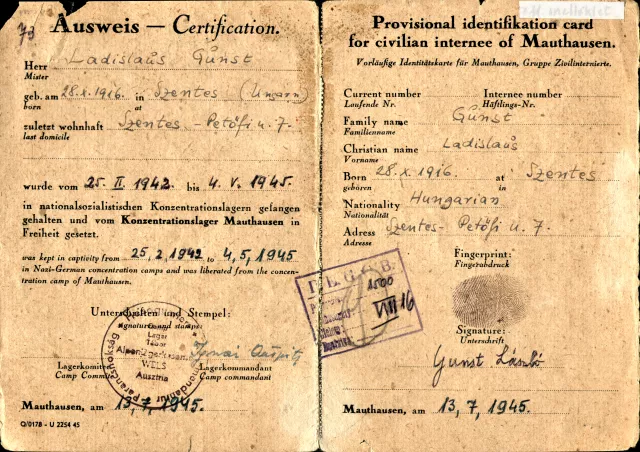 73
Ausweis — Certification.
Herr Ladislaus Gunst
Mister
geb. am 28.X.1916. in Szentes (Ungarn)
born at
zuletzt wohnhaft Szentes - Petőfi u. 7.
last domicile
wurde vom 25. II. 1942. bis 4. V. 1945.
in nationalsozialistischen Konzentrationslagern gefangen
gehalten und vom Konzentrationslager Mauthausen in
Freiheit gesetzt.
was kept in captivity from 25, 2, 1942 to 4, 5, 1945
in Nazi-German concentration camps and was liberated from the concen-
tration camp of Mauthausen.
Unterschriften und Stempel:
Signatures and stamps:
Lager
WELS
Ausztria
Parancsnokság
Lagerkomitee Lagerkommandant
Camp Camp commandant
Mauthausen, am 13, 7, 1945.
O/0178 - U 2254 45
Provisional identifikation card
for civilian internee of Mauthausen.
Vorläufige Identitätskarte für Mauthausen, Gruppe Zivilinternierte.
Current number Internee number
Laufende Nr. Häftlings-Nr.
Family name Gunst
Familienname
Christian name Ladislaus
Vorname
Born 28.X.1916. at Szentes
geboren in
Nationality Hungarian
Nationalität
Adress Szentes - Petőfi u. 7.
Adresse
Fingerprint:
Fingerabdruck
1500
VIII 16
Signature:
Unterschrift
Gunst László
Mauthausen, am 13, 7, 1945.